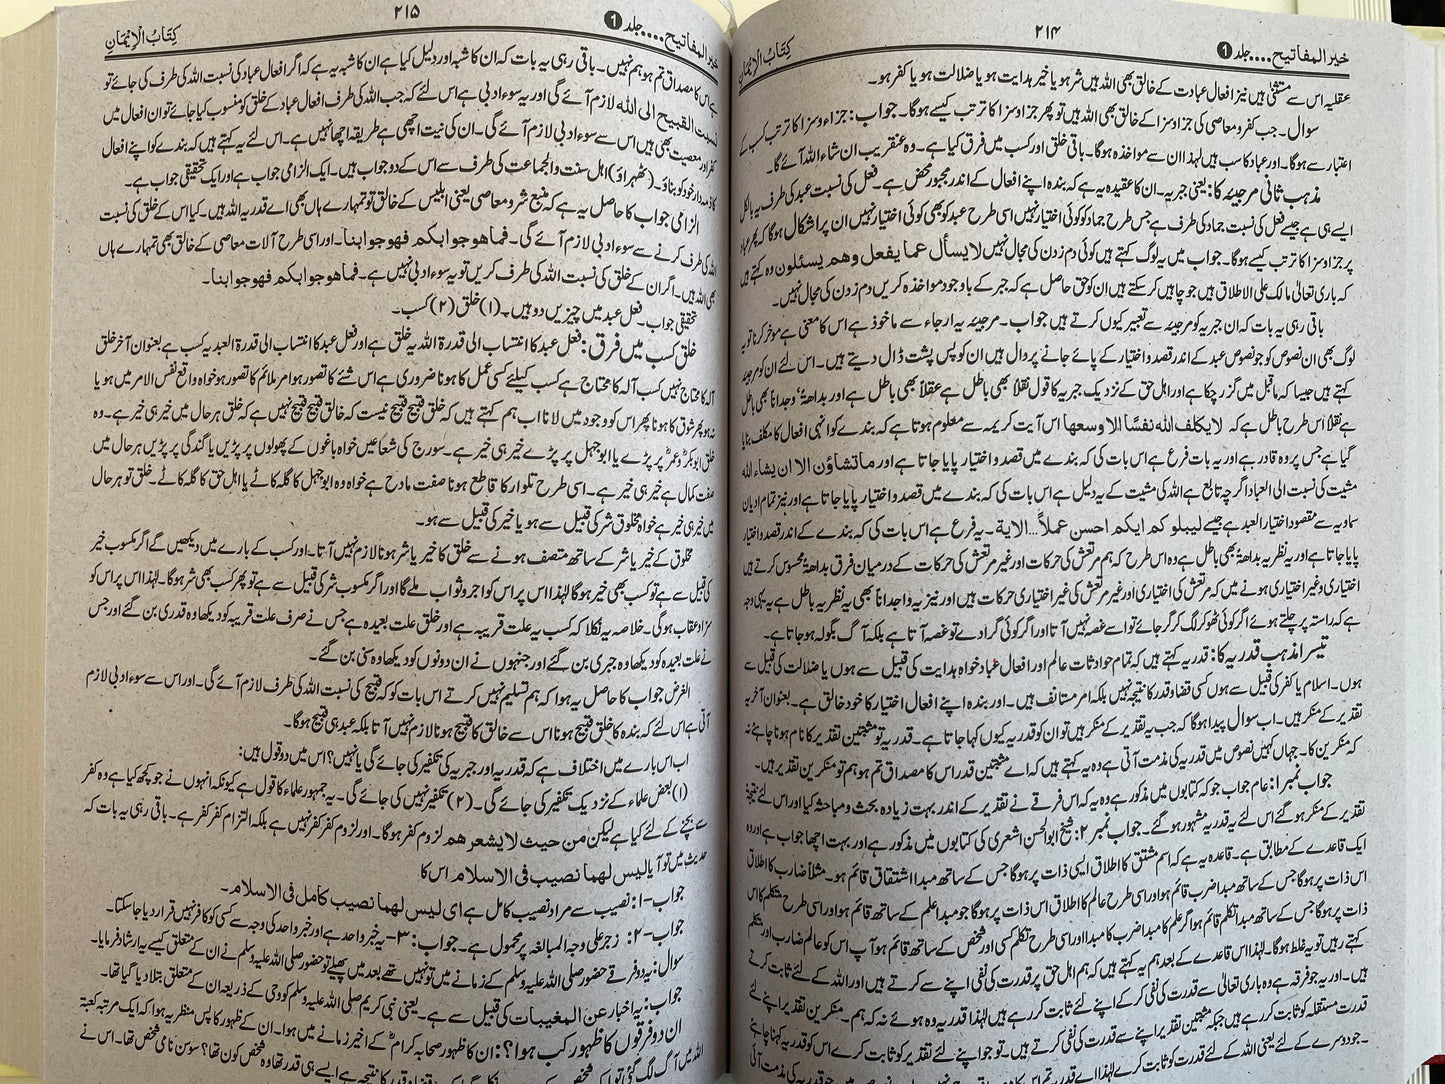 خیر المفاتیح.....جلد 1
۲۱۴
کِتَابُ الْاِیْمَانِ
عقلیہ اس سے مستثنیٰ ہیں نیز افعال عبادت کے خالق بھی اللہ ہیں شر ہو یا خیر ہدایت ہو یا ضلالت ہو یا کفر ہو۔
سوال۔ جب کفر و معاصی کی جزا و سزا کے خالق بھی اللہ ہیں تو پھر جزا و سزا کا ترتب کیسے ہوگا۔ جواب: جزاء و سزا کا ترتب کسب کے
اعتبار سے ہوگا۔ اور عباد کاسب ہیں لہذا ان سے مواخذہ ہوگا۔ باقی خلق اور کسب میں فرق کیا ہے۔ وہ عنقریب ان شاء اللہ آئے گا۔
مذہب ثانی مرجیئہ کا: یعنی جبریہ۔ ان کا عقیدہ یہ ہے کہ بندہ اپنے افعال کے اندر مجبور محض ہے۔ فعل کی نسبت عبد کی طرف یہ بالکل
ایسے ہی ہے جیسے فعل کی نسبت جماد کی طرف ہے جس طرح جماد کو کوئی اختیار نہیں اسی طرح عبد کو بھی کوئی اختیار نہیں ان پر اشکال ہوگا کہ پھر عباد
پر جزا و سزا کا ترتب کیسے ہوگا۔ جواب میں یہ لوگ کہتے ہیں کوئی دم زدن کی مجال نہیں لا یسأل عما یفعل وھم یسئلون وہ کہتے ہیں
کہ باری تعالیٰ مالک علی الاطلاق ہیں جو چاہیں کر سکتے ہیں ان کو حق حاصل ہے کہ جبر کے باوجود مواخذہ کریں دم زدن کی مجال نہیں۔
باقی رہی یہ بات کہ ان جبریہ کو مرجیئہ سے تعبیر کیوں کرتے ہیں جواب۔ مرجیئہ یہ ارجاء سے ماخوذ ہے اس کا معنی ہے موخر کرنا تو یہ
لوگ بھی ان نصوص کو جو نصوص عبد کے اندر قصد و اختیار کے پائے جانے پر دال ہیں ان کو پس پشت ڈال دیتے ہیں۔ اس لئے ان کو مرجیئہ
کہتے ہیں جیسا کہ ماقبل میں گزر چکا ہے اور اہل حق کے نزدیک جبریہ کا قول نقلاً بھی باطل ہے عقلاً بھی باطل ہے اور بداھۃً، وجداناً بھی باطل
ہے نقلاً اس طرح باطل ہے کہ لا یکلف اللہ نفسًا الا وسعھا اس آیت کریمہ سے معلوم ہوتا ہے کہ بندے کو انہی افعال کا مکلف بنایا
گیا ہے جس پر وہ قادر ہے اور یہ بات فرع ہے اس بات کی کہ بندے میں قصد و اختیار پایا جاتا ہے اور ما تشاؤن الا ان یشاء اللہ
مشیت کی نسبت الی العباد اگرچہ تابع ہے اللہ کی مشیت کے یہ دلیل ہے اس بات کی کہ بندے میں قصد و اختیار پایا جاتا ہے اور نیز تمام ادیان
سماویہ سے مقصود اختیار العبد ہے جیسے لیبلو کم ایکم احسن عملاً....الایۃ۔ یہ فرع ہے اس بات کی کہ بندے کے اندر قصد و اختیار
پایا جاتا ہے اور یہ نظریہ بداھۃً بھی باطل ہے وہ اس طرح کہ ہم مرتعش کی حرکات اور غیر مرتعش کی حرکات کے درمیان فرق بداھۃً محسوس کرتے ہیں
اختیاری و غیر اختیاری ہونے میں کہ مرتعش کی اختیاری اور غیر مرتعش کی غیر اختیاری حرکات ہیں اور نیز یہ وجداناً بھی یہ نظریہ باطل ہے یہی وجہ
ہے کہ راستہ پر چلتے ہوئے اگر کوئی ٹھوکر لگ کر گر جائے تو اسے غصہ نہیں آتا اور اگر کوئی گرا دے تو غصہ آتا ہے بلکہ آگ بگولہ ہو جاتا ہے۔
تیسرا مذہب قدریہ کا: قدریہ کہتے ہیں کہ تمام حوادثات عالم اور افعال عباد خواہ ہدایت کی قبیل سے ہوں یا ضلالت کی قبیل سے
ہوں۔ اسلام یا کفر کی قبیل سے ہوں کسی قضا و قدر کا نتیجہ نہیں بلکہ امر مستانف ہیں۔ اور بندہ اپنے افعال اختیار کا خود خالق ہے۔ بعنوان آخر یہ
تقدیر کے منکر ہیں۔ اب سوال پیدا ہوگا کہ جب یہ تقدیر کے منکر ہیں تو ان کو قدریہ کیوں کہا جاتا ہے۔ قدریہ تو مثبتین تقدیر کا نام ہونا چاہئے نہ
کہ منکرین کا۔ جہاں کہیں نصوص میں قدریہ کی مذمت آتی ہے وہ یہ کہتے ہیں کہ اے مثبتین قدر اس کا مصداق تم ہو ہم تو منکرین تقدیر ہیں۔
جواب نمبر۱: عام جواب جو کہ کتابوں میں مذکور ہے وہ یہ کہ اس فرقے نے تقدیر کے اندر بہت زیادہ بحث و مباحثہ کیا اور اس لئے نتیجۃً
تقدیر کے منکر ہو گئے اس لئے یہ قدریہ مشہور ہو گئے۔ جواب نمبر ۲: شیخ ابوالحسن اشعری کی کتابوں میں مذکور ہے اور بہت اچھا جواب ہے اور وہ
ایک قاعدے کے مطابق ہے۔ قاعدہ یہ ہے کہ اسم مشتق کا اطلاق ایسی ذات پر ہوگا جس کے ساتھ مبدا اشتقاق قائم ہو۔ مثلاً ضارب کا اطلاق
اس ذات پر ہوگا جس کے ساتھ مبدا ضرب قائم ہو اور اسی طرح عالم کا اطلاق اس ذات پر ہوگا جو مبدا علم کے ساتھ قائم ہو اور اسی طرح متکلم کا اس
ذات پر ہوگا جس کے ساتھ مبدا تکلم قائم ہو اگر علم کا مبدا ضرب کا مبدا اور اسی طرح تکلم کسی اور شخص کے ساتھ قائم ہو آپ اس کو عالم ضارب اور متکلم
کہتے رہیں تو یہ غلط ہوگا۔ لہذا اس قاعدے کے بعد ہم یہ کہتے ہیں کہ ہم اہل حق پر قدرت کی نفی اپنے سے کرتے ہیں اور اللہ کے لئے ثابت کرتے
ہیں۔ اور یہ جو فرقہ ہے وہ باری تعالیٰ سے قدرت کی نفی کر کے اپنے لئے ثابت کرتے ہیں لہذا قدریہ وہ ہوئے نہ کہ ہم۔ منکرین تقدیر اپنے لئے
قدرت مستقلہ کو ثابت کر رہے ہیں جبکہ مثبتین تقدیر اپنے سے قدرت کی نفی کرتے ہیں۔ تو جو اپنے لئے تقدیر کو ثابت کرے اس کو قدریہ کہنا چاہئے
۔ جو دوسرے کے لئے یعنی اللہ کے لئے قدرت کو ثابت کرے لہذا اے قدریہ تم اس کا
خیر المفاتیح.....جلد 1
۲۱۵
کِتَابُ الْاِیْمَانِ
ہے اس کا مصداق تم ہو ہم نہیں۔ باقی رہی یہ بات کہ ان کا شبہ اور دلیل کیا ہے ان کا شبہ یہ ہے کہ اگر افعال عباد کی نسبت اللہ کی طرف کی جائے تو
نسبت القبیح الی اللہ لازم آئے گی اور یہ سوء ادبی ہے اس لئے کہ جب اللہ کی طرف افعال عباد کے خلق کو منسوب کیا جائے تو ان افعال میں
کفر اور معصیت بھی ہیں اس سے سوء ادبی لازم آئے گی۔ ان کی نیت اچھی ہے طریقہ اچھا نہیں ہے۔ اس لئے یہ کہتے ہیں کہ بندے کو اپنے افعال
کا ذمہ دار خود کو بناؤ۔ (ٹھہراؤ) اہل سنت والجماعت کی طرف سے اس کے دو جواب ہیں۔ ایک الزامی جواب ہے اور ایک تحقیقی جواب ہے۔
الزامی جواب کا حاصل یہ ہے کہ منبع شر و معاصی یعنی ابلیس کے خالق تو تمہارے ہاں بھی اے قدریہ اللہ ہیں۔ کیا اس کے خلق کی نسبت
اللہ کی طرف کرنے سے سوء ادبی لازم آئے گی۔ فما ھو جوابکم فھو جوابنا۔ اور اسی طرح آلات معاصی کے خالق بھی تمہارے ہاں
بھی اللہ ہیں۔ اگر ان کے خلق کی نسبت اللہ کی طرف کریں تو یہ سوء ادبی نہیں ہے۔ فما ھو جوابکم فھو جوابنا۔
تحقیقی جواب۔ فعل عبد میں چیزیں دو ہیں۔ (۱) خلق (۲) کسب۔
خلق کسب میں فرق: فعل عبد کا انتساب الی قدرۃ اللہ یہ خلق ہے اور فعل عبد کا انتساب الی قدرۃ العبد یہ کسب ہے بعنوان آخر خلق
آلہ کا محتاج نہیں کسب آلہ کا محتاج ہے کسب کیلئے کسی عمل کا ہونا ضروری ہے اس شئے کا تصور ہو امر ملائم کا تصور ہو خواہ واقع نفس الامر میں ہو یا
نہ ہو پھر شوق کا ہونا پھر اس کو وجود میں لانا اب ہم کہتے ہیں کہ خلق قبیح قبیح نیست کہ خالق قبیح قبیح نہیں ہے کہ خلق ہر حال میں خیر ہی خیر ہے۔ وہ
خلق ابوبکرؓ و عمرؓ پر پڑے یا ابوجہل پر پڑے خیر ہی خیر ہے۔ سورج کی شعاعیں خواہ باغوں کے پھولوں پر پڑیں یا گندگی پر پڑیں ہر حال میں
صفت کمال ہے خیر ہی خیر ہے۔ اسی طرح تلوار کا قاطع ہونا صفت مادح ہے خواہ وہ ابوجہل کا گلہ کاٹے یا اہل حق کا گلہ کاٹے۔ خلق تو ہر حال
میں خیر ہی خیر ہے خواہ مخلوق شر کی قبیل سے ہو یا خیر کی قبیل سے ہو۔
مخلوق کے خیر یا شر کے ساتھ متصف ہونے سے خلق کا خیر یا شر ہونا لازم نہیں آتا۔ اور کسب کے بارے میں دیکھیں گے اگر مکسوب خیر
کی قبیل سے ہے تو کسب بھی خیر ہوگا لہٰذا اس پر اس کو اجر و ثواب ملے گا اور اگر مکسوب شر کی قبیل سے ہے تو پھر کسب بھی شر ہوگا۔ لہٰذا اس پر اس کو
سزا و عقاب ہوگی۔ خلاصہ یہ نکلا کہ کسب یہ علت قریبہ ہے اور خلق علت بعیدہ ہے جس نے صرف علت قریبہ کو دیکھا وہ قدری بن گئے اور جس
نے علت بعیدہ کو دیکھا وہ جبری بن گئے اور جنہوں نے ان دونوں کو دیکھا وہ سنی بن گئے۔
الغرض جواب کا حاصل یہ ہوا کہ ہم تسلیم نہیں کرتے اس بات کو کہ قبیح کی نسبت اللہ کی طرف لازم آئے گی۔ اور اس سے سوء ادبی لازم
آتی ہے اس لئے کہ بندہ کا خلق قبیح ہونا اس سے خالق کا قبیح ہونا لازم نہیں آتا بلکہ عبد ہی قبیح ہوگا۔
اب اس بارے میں اختلاف ہے کہ قدریہ اور جبریہ کی تکفیر کی جائے گی یا نہیں؟ اس میں دو قول ہیں:
(۱) بعض علماء کے نزدیک تکفیر کی جائے گی۔ (۲) تکفیر نہیں کی جائے گی۔ یہ جمہور علماء کا قول ہے کیونکہ انہوں نے جو کچھ کیا ہے وہ کفر
سے بچنے کے لئے کیا ہے لیکن من حیث لا یشعر ھم لزوم کفر ہوگا۔ اور لزوم کفر کفر نہیں ہے بلکہ التزام کفر کفر ہے۔ باقی رہی یہ بات کہ
حدیث میں تو آیا لیس لھما نصیب فی الاسلام اس کا
جواب-۱: نصیب سے مراد نصیب کامل ہے ای لیس لھما نصیب کامل فی الاسلام۔
جواب-۲: زجر علی وجہ المبالغہ پر محمول ہے۔ جواب: ۳-یہ خبر واحد ہے اور خبر واحد کی وجہ سے کسی کو کافر نہیں قرار دیا جا سکتا۔
سوال: یہ دو فرقے حضور صلی اللہ علیہ وسلم کے زمانے میں تو نہیں تھے بعد میں پھیلے تو حضور صلی اللہ علیہ وسلم نے ان کے متعلق کیسے یہ ارشاد فرمایا۔
جواب: یہ اخبار عن المغیبات کی قبیل سے ہے۔ یعنی نبی کریم صلی اللہ علیہ وسلم کو وحی کے ذریعہ ان کے متعلق بتلا دیا گیا تھا۔
ان دو فرقوں کا ظہور کب ہوا؟: ان کا ظہور صحابہ کرامؓ کے اخیر زمانے میں ہوا۔ ان کے ظہور کا پس منظر یہ ہوا کہ ایک مرتبہ کعبۃ
اللہ میں آگ لگ گئی تو ایک شخص کون تھا؟ سوسن نامی شخص تھا۔ اس نے